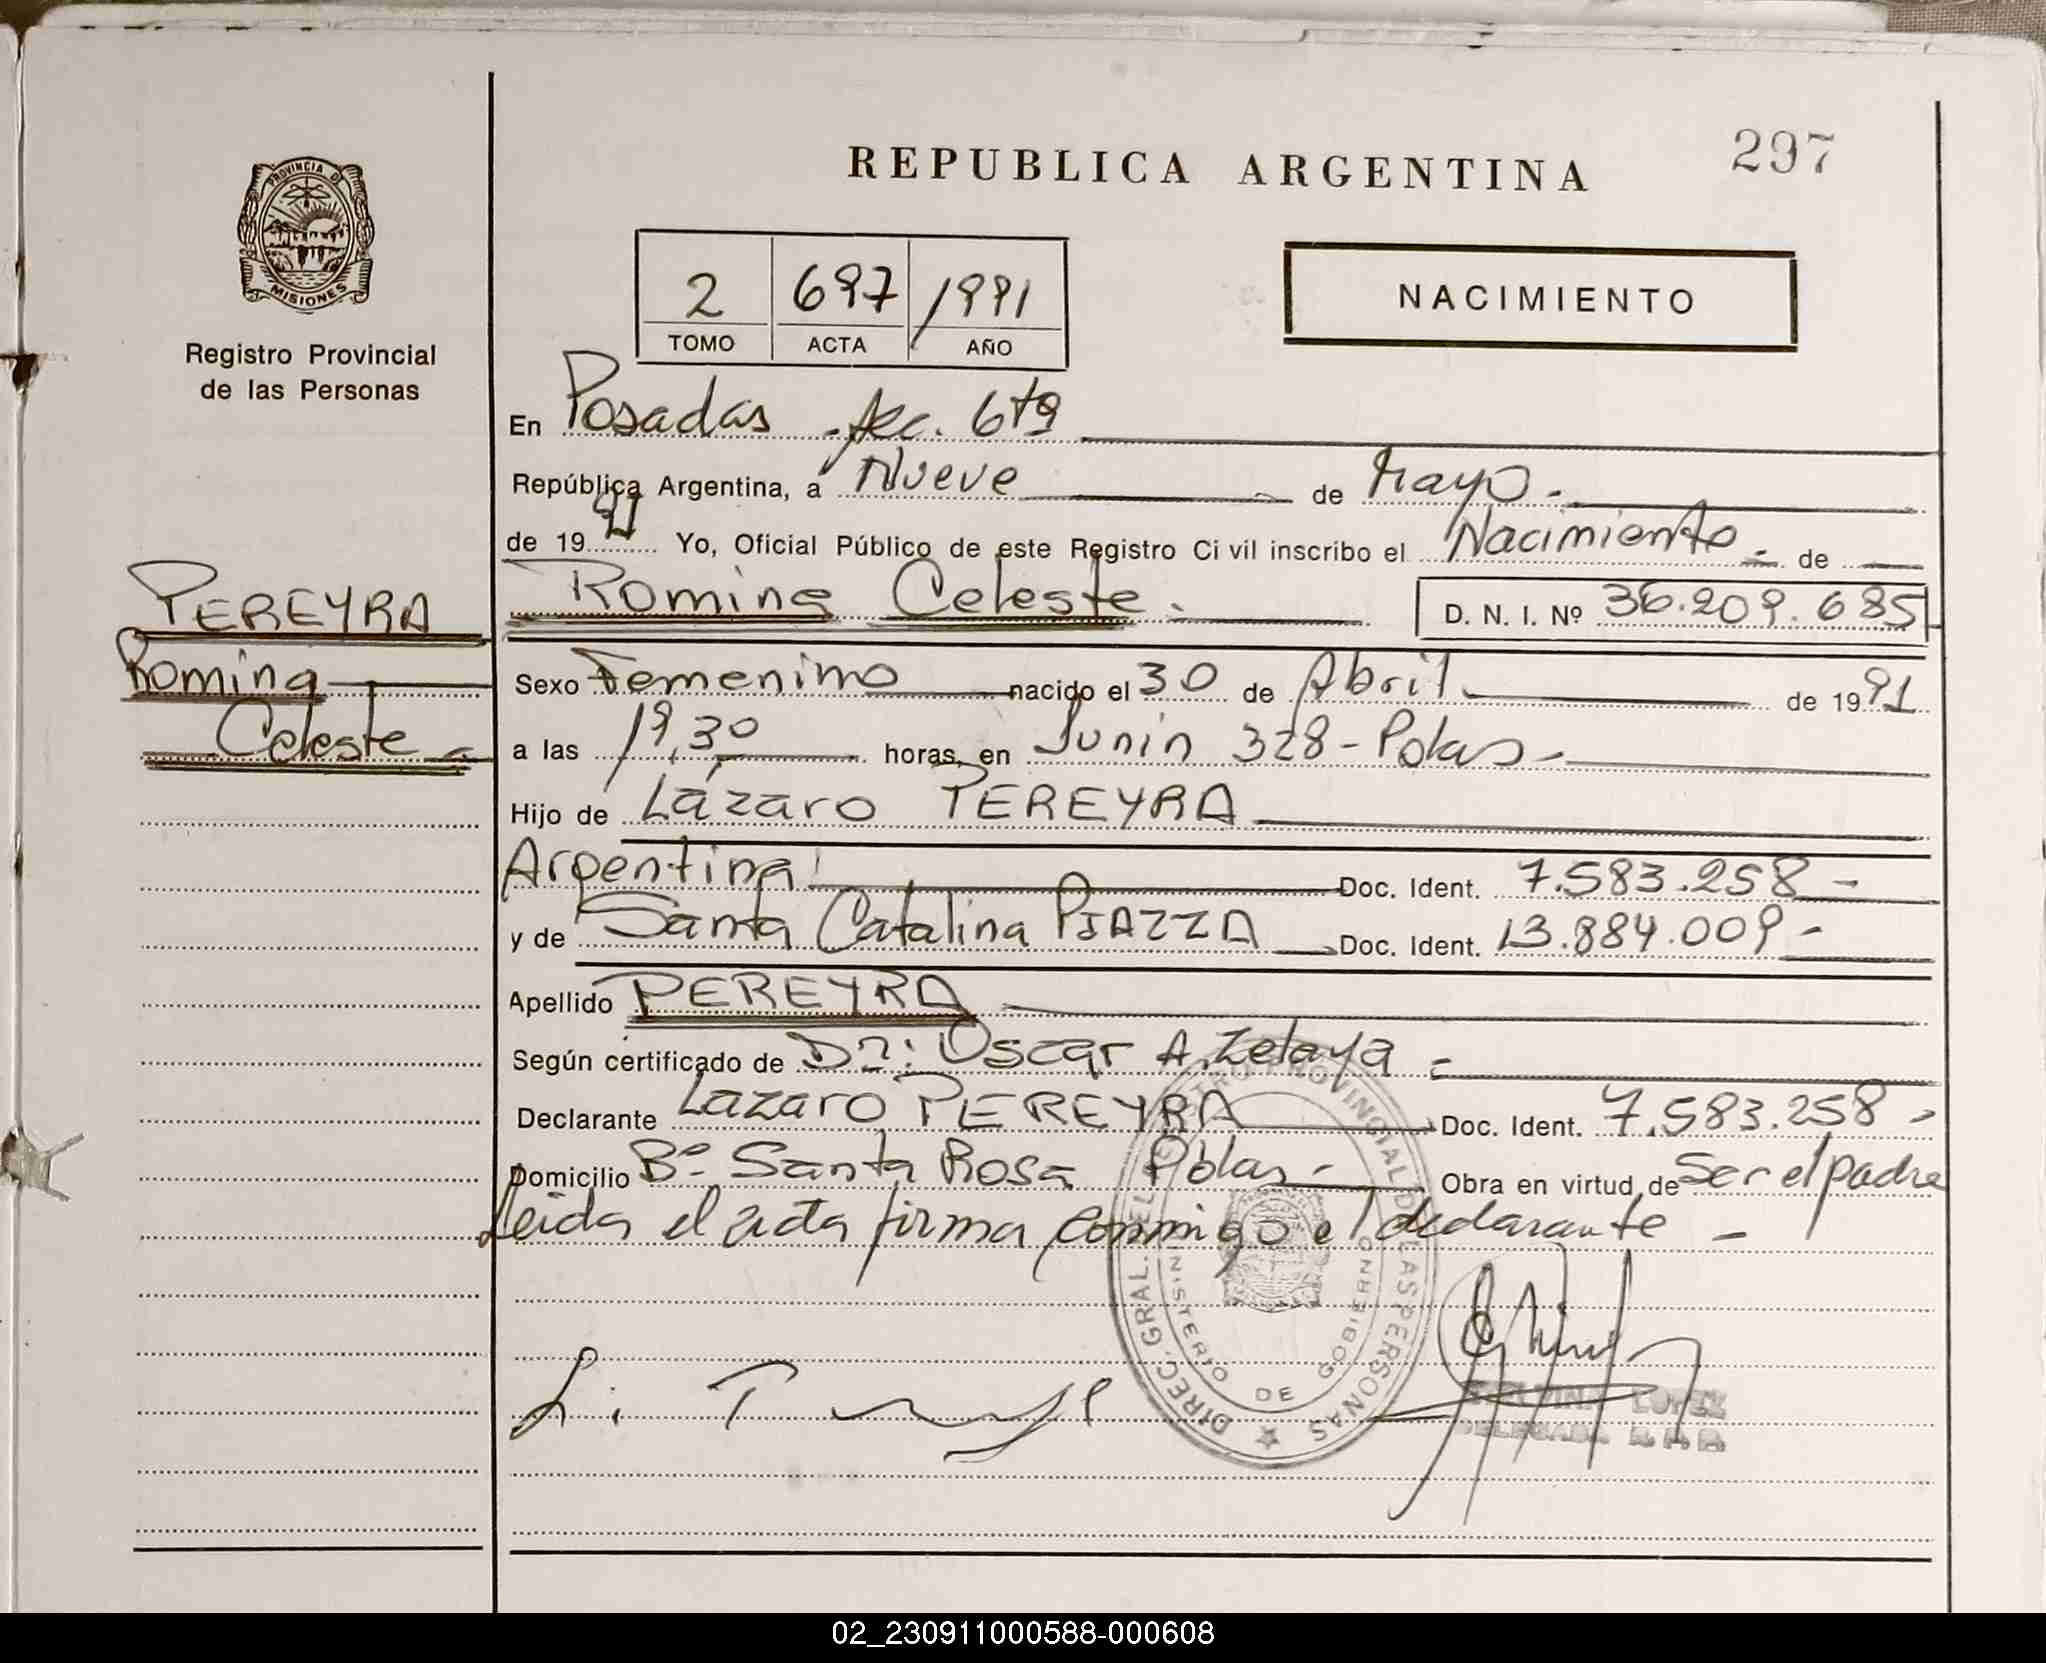 297
REPUBLICA ARGENTINA
PROVINCIA DE
MISIONES
Registro Provincial
de las Personas
2 697 /1991
TOMO ACTA AÑO
NACIMIENTO
En Posadas - Sec. 6ta
República Argentina, a Nueve de Mayo.-
de 1991 Yo, Oficial Público de este Registro Civil inscribo el Nacimiento - de
Romina Celeste.- D. N. I. Nº 36.209.685
PEREYRA
Romina
Celeste -
Sexo Femenino nacido el 30 de Abril de 1991
a las 19,30 horas, en Junin 328 - Pdas -
Hijo de Lázaro PEREYRA
Argentina Doc. Ident. 7.583.258 -
y de Santa Catalina PIAZZA Doc. Ident. 13.884.009 -
Apellido PEREYRA
Según certificado de Dr: Oscar A. Zelaya -
Declarante Lazaro PEREYRA Doc. Ident. 7.583.258 -
Domicilio Bº Santa Rosa Pdas - Obra en virtud de Ser el padre
Leida el acta firma conmigo el declarante -
DIREC. GRAL. DEL REGISTRO PROVINCIAL DE LAS PERSONAS
MINISTERIO DE GOBIERNO
LOPEZ
DELEGADA R. P. P.
02_230911000588-000608